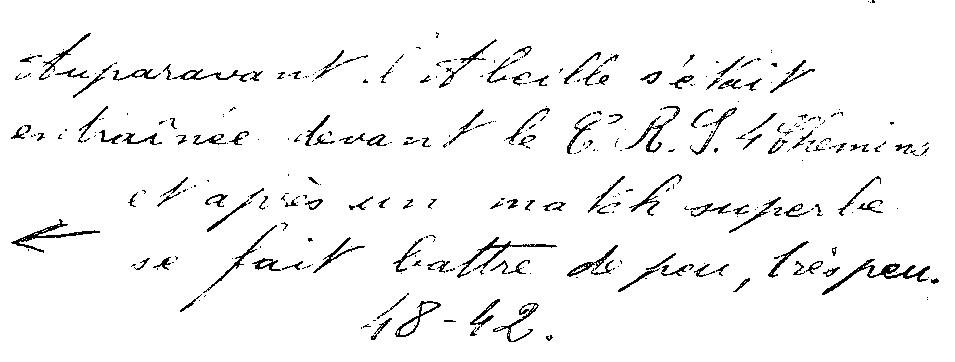 Auparavant l'Abeille s'était
entraînée devant le C.R.S. 4 Chemins
et après un match superbe
se fait battre de peu, très peu.
48-42.